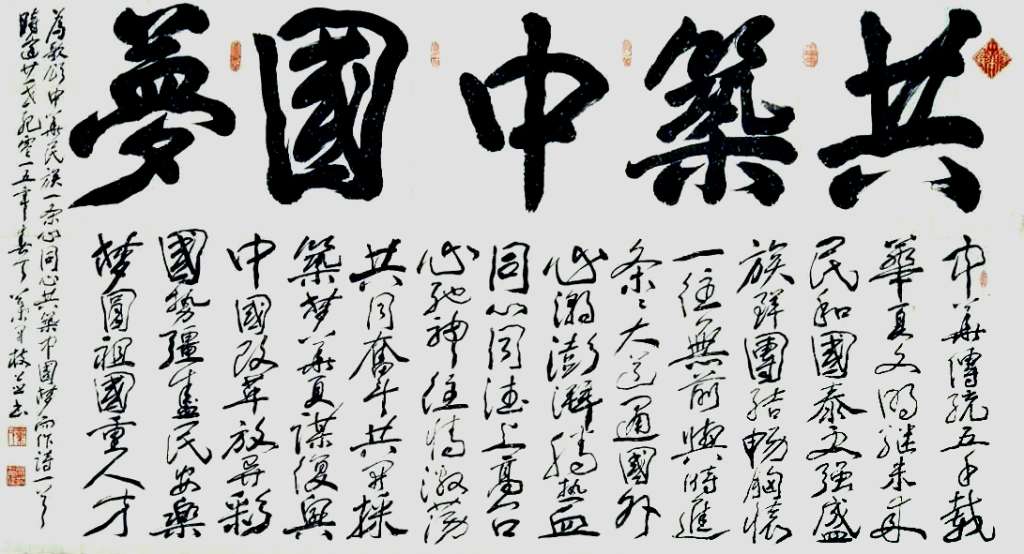 共築中國夢
中華傳統五千載
華夏文明継未來
民和國泰更强盛
族群團結暢胸懷
一往無前與時進
条々大道通國外
心潮澎湃騰熱血
同心同德上高台
心馳神往情激蕩
共同奮斗共開採
築梦華夏謀復興
中國改革放异彩
國勢彊盛民安樂
梦圓祖國重人才
為歌頌中華民族一条心同心共築中國梦而作詩一首
時逢廿一世紀零一五年春月